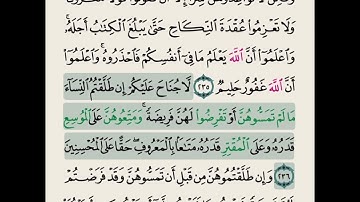 وَلَا تَعْزِمُوا۟ عُقْدَةَ ٱلنِّكَاحِ حَتَّىٰ يَبْلُغَ ٱلْكِتَٰبُ أَجَلَهُۥ ۚ
وَٱعْلَمُوٓا۟ أَنَّ ٱللَّهَ يَعْلَمُ مَا فِىٓ أَنفُسِكُمْ فَٱحْذَرُوهُ ۚ وَٱعْلَمُوٓا۟
أَنَّ ٱللَّهَ غَفُورٌ حَلِيمٌ ٢٣٥ لَّا جُنَاحَ عَلَيْكُمْ إِن طَلَّقْتُمُ ٱلنِّسَآءَ
مَا لَمْ تَمَسُّوهُنَّ أَوْ تَفْرِضُوا۟ لَهُنَّ فَرِيضَةً ۚ وَمَتِّعُوهُنَّ عَلَى ٱلْمُوسِعِ
قَدَرُهُۥ وَعَلَى ٱلْمُقْتِرِ قَدَرُهُۥ مَتَٰعًۢا بِٱلْمَعْرُوفِ ۖ حَقًّا عَلَى ٱلْمُحْسِنِينَ
٢٣٦ وَإِن طَلَّقْتُمُوهُنَّ مِن قَبْلِ أَن تَمَسُّوهُنَّ وَقَدْ فَرَضْتُمْ